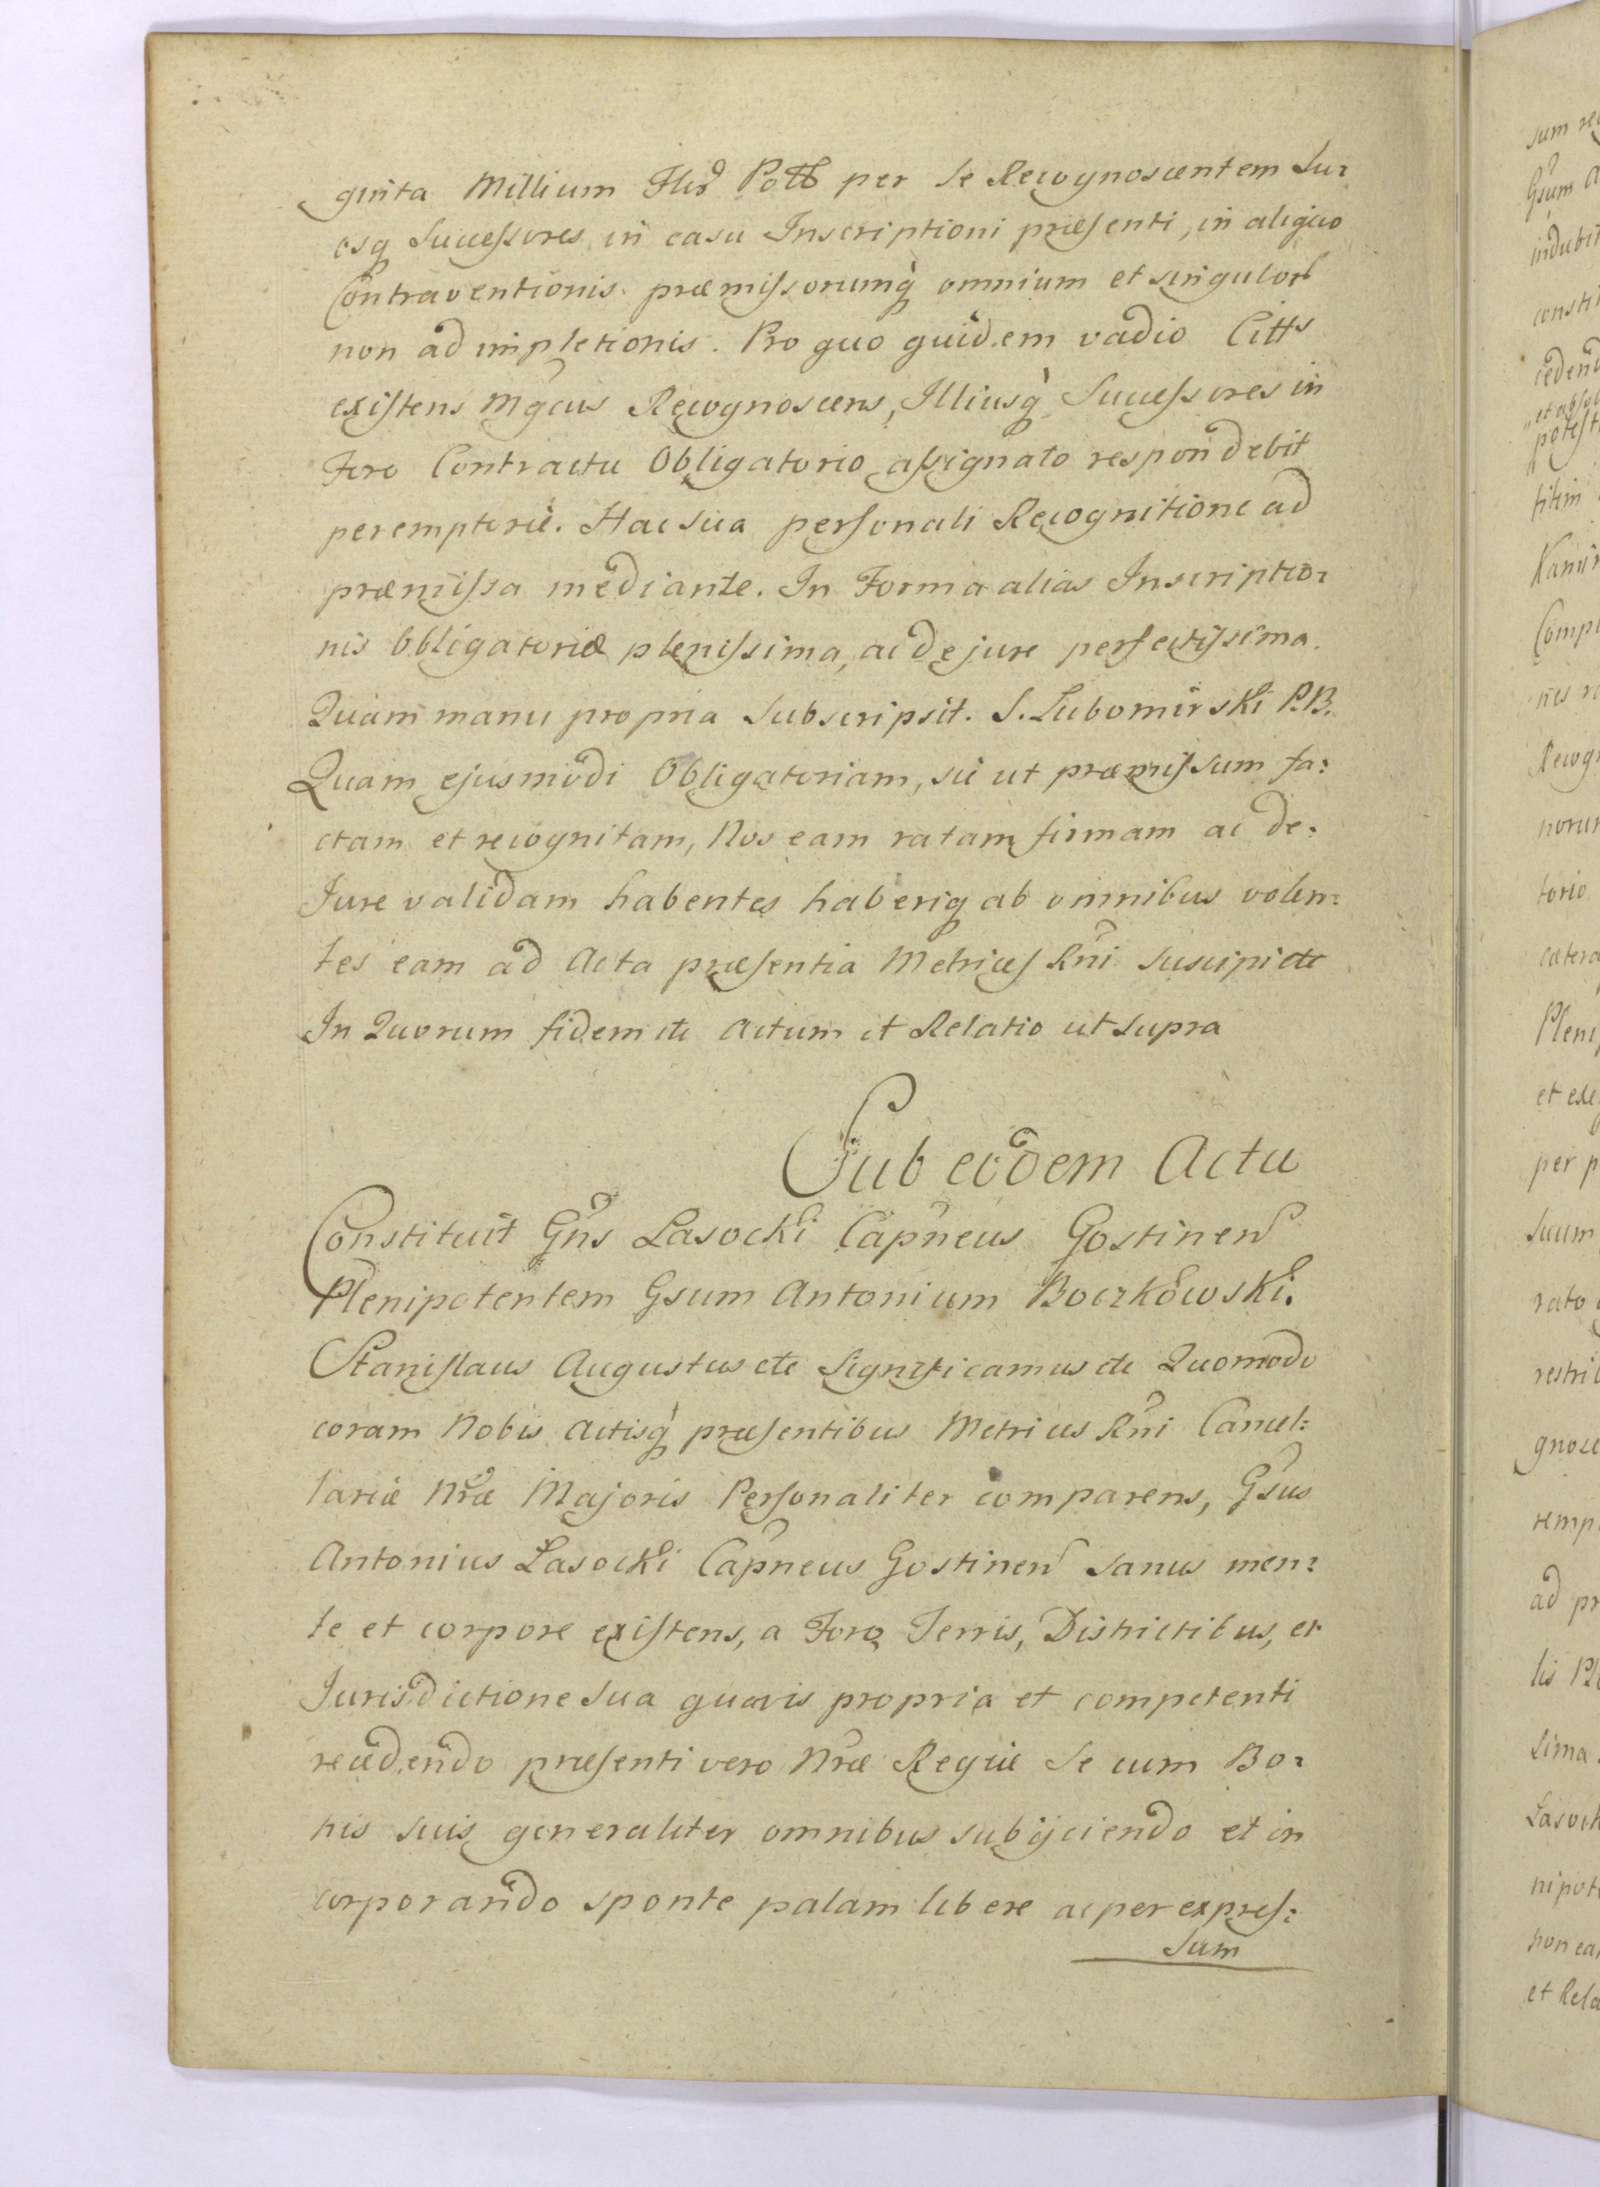 ginta Millium Flor Poll per se Recognoscentem Su-
osq Successores in casu Inscriptioni præsenti, in aliquo
Contraventionis præmissorumq omnium et singulor
non adimpletionis. Pro quo quidem vadio Citts
existens Mgcus Recognoscens, Illiusq Successores in
Foro Contractu Obligatorio assignato respondebit
peremptorie. Hac sua personali Recognitione ad
præmissa mediante. In Forma alias Inscriptio-
nis Obligatoriæ plenissima, ac de jure perfectissima.
Quam manu propria subscripsit. S. Lubomirski P.B.
Quam ejusmodi Obligatoriam, sic ut præmissum fa:
ctam et recognitam, Nos eam ratam firmam ac de:
Jure validam habentes haberiq ab omnibus volen:
tes eam ad Acta præsentia Metrices Rni suscipi etc
In Quorum fidem etc Actum et Relatio ut supra
Sub eodem Actu
Constituit Gns Lasocki Capneus Gostinen
Plenipotentem Gsum Antonium Boczkowski.
Stanislaus Augustus etc Significamus etc Quomodo
coram Nobis Actisq præsentibus Metrices Rni Cancel:
lariæ Nræ Majoris Personaliter comparens, Gsus
Antonius Lasocki Capneus Gostinen sanus men:
te et corpore existens, a Foro Terris, Districtibus, et
Jurisdictione sua quavis propria et competenti
recedendo præsenti vero Nræ Regiæ se cum Bo:
nis suis generaliter omnibus subijciendo et in
corporando sponte palam libere ac per expres:
sum